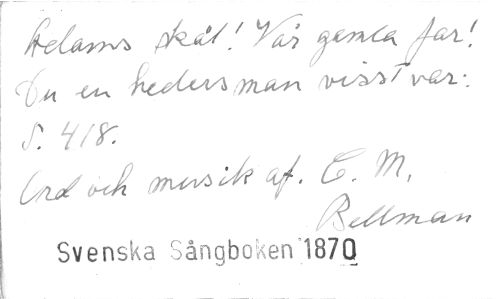 Adams skål! Vår gamla far!
Du en hedersman visst var:
S. 418.
Ord och musik af. C. M.
Bellman
Svenska Sångboken 1870